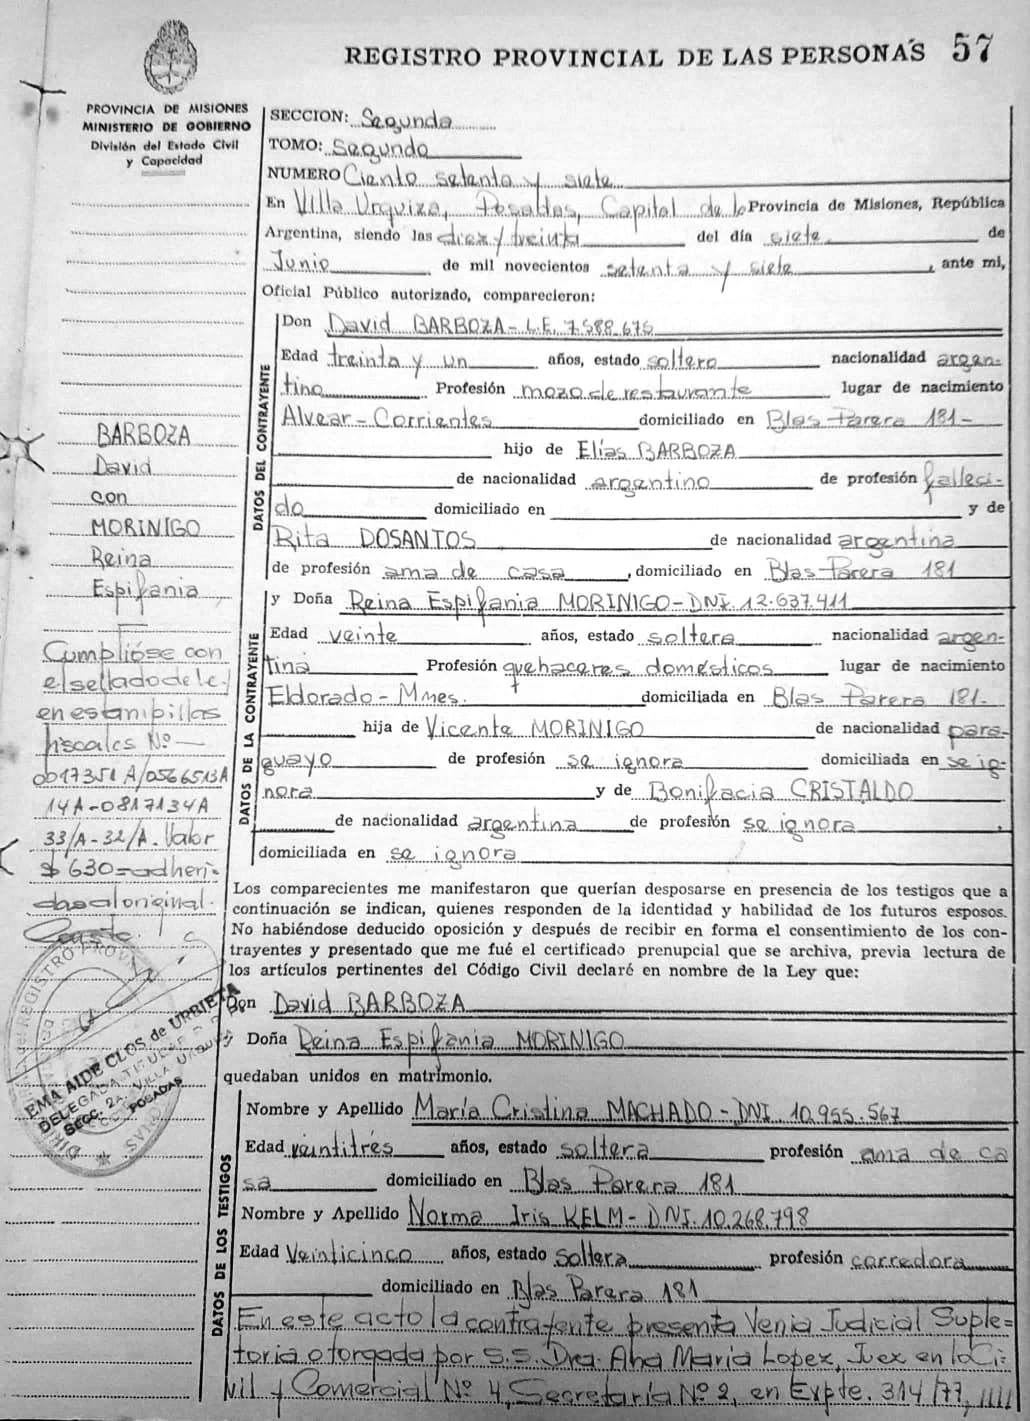 REGISTRO PROVINCIAL DE LAS PERSONAS 57
PROVINCIA DE MISIONES
MINISTERIO DE GOBIERNO
División del Estado Civil
y Capacidad
BARBOZA
David
con
MORINIGO
Reina
Espifania
Cumplióse con
el sellado de le
en estampillas
fiscales Nº
0017351 A/0566513A
14A-0817134A
33/A-32/A. Valor
$ 630=adheri-
das al original.
EMA AIDE CLOS de URRIETA
DELEGADA TITULAR
SECC. 2A. VILLA URQUIZA
POSADAS
SECCION: Segunda
TOMO: Segundo
NUMERO Ciento setenta y siete
En Villa Urquiza, Posadas, Capital de la Provincia de Misiones, República
Argentina, siendo las diez y treinta del día siete de
Junio de mil novecientos setenta y siete, ante mi,
Oficial Público autorizado, comparecieron:
DATOS DEL CONTRAYENTE
Don David BARBOZA - L.E. 7.588.675
Edad treinta y un años, estado soltero nacionalidad argen-
tino Profesión mozo de restaurante lugar de nacimiento
Alvear - Corrientes domiciliado en Blas Parera 181-
hijo de Elías BARBOZA
de nacionalidad argentino de profesión falleci-
do domiciliado en y de
Rita DOSANTOS de nacionalidad argentina
de profesión ama de casa, domiciliado en Blas Parera 181
DATOS DE LA CONTRAYENTE
y Doña Reina Espifania MORINIGO - DNI. 12.637.411
Edad veinte años, estado soltera nacionalidad argen-
tina Profesión quehaceres domésticos lugar de nacimiento
Eldorado - Mnes. domiciliada en Blas Parera 181-
hija de Vicente MORINIGO de nacionalidad para-
guayo de profesión se ignora domiciliada en se ig-
nora y de Bonifacia CRISTALDO
de nacionalidad argentina de profesión se ignora,
domiciliada en se ignora
Los comparecientes me manifestaron que querían desposarse en presencia de los testigos que a
continuación se indican, quienes responden de la identidad y habilidad de los futuros esposos.
No habiéndose deducido oposición y después de recibir en forma el consentimiento de los con-
trayentes y presentado que me fué el certificado prenupcial que se archiva, previa lectura de
los artículos pertinentes del Código Civil declaré en nombre de la Ley que:
Don David BARBOZA
y Doña Reina Espifania MORINIGO
quedaban unidos en matrimonio.
DATOS DE LOS TESTIGOS
Nombre y Apellido María Cristina MACHADO - DNI 10.955.567
Edad veintitrés años, estado soltera profesión ama de ca
sa domiciliado en Blas Parera 181
Nombre y Apellido Norma Iris KELM - DNI. 10.268.798
Edad Veinticinco años, estado soltera profesión corredora
domiciliado en Blas Parera 181
En este acto la contrayente presenta Venia Judicial Suple=
toria otorgada por S.S. Dra. Ana María Lopez, Juez en lo Ci-
vil y Comercial Nº 4, Secretaría Nº 2, en Expte. 314/77, ////